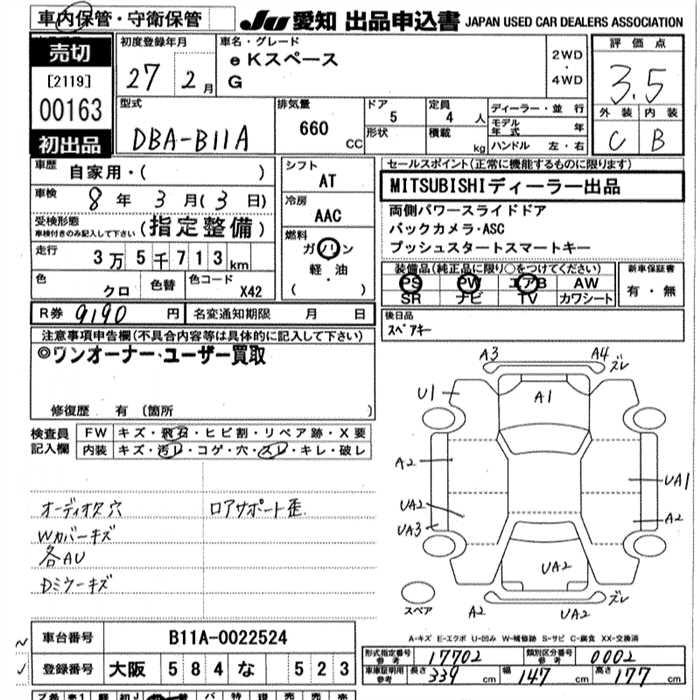 車内保管・守衛保管
JU 愛知 出品申込書 JAPAN USED CAR DEALERS ASSOCIATION
売切
[2119]
00163
初出品
初度登録年月
27年 2月
車名・グレード
eKスペース
G
2WD
・
4WD
評価点
3.5
外装 内装
C B
型式
DBA-B11A
排気量
660 CC
ドア
5
形状
定員
4 人
積載
kg
ディーラー・並行
モデル年式 年
ハンドル 左・右
車歴
自家用・( )
車検
8年 3月(3日)
受検形態
車検付きのみ記入して下さい
(指定整備)
走行
3万5千713km
色
クロ
色替
色コード
X42
シフト
AT
冷房
AAC
燃料
ガソリン
軽・油
( )
セールスポイント(正常に機能するものに限ります)
MITSUBISHIディーラー出品
両側パワースライドドア
バックカメラ・ASC
プッシュスタートスマートキー
装備品(純正品に限り○をつけてください)
PS PW エアB AW
SR ナビ TV カワシート
新車保証書
有・無
R券 9190 円
名変通知期限 月 日
後日品
スペアキー
注意事項申告欄(不具合内容等は具体的に記入して下さい)
◎ワンオーナー・ユーザー買取
修復歴 有(箇所 )
検査員記入欄
FW キズ・飛石・ヒビ割・リペア跡・X要
内装 キズ・汚レ・コゲ・穴・スレ・キレ・破レ
オーディオ穴
ロアサポート歪
Wカバーキズ
各AU
Dミラーキズ
A3 A4 ズレ
U1 A1
A2
UA2
UA3
UA1
A2
UA2
ズレ
A2 UA2
スペア
A-キズ E-エクボ U-凹み W-補修跡 S-サビ C-腐食 XX-交換済
車台番号 B11A-0022524
登録番号 大阪 584 な 523
型式指定番号 参考 17702
類別区分番号 参考 0002
車庫証明用 参考 長さ 339 cm 幅 147 cm 高さ 177 cm